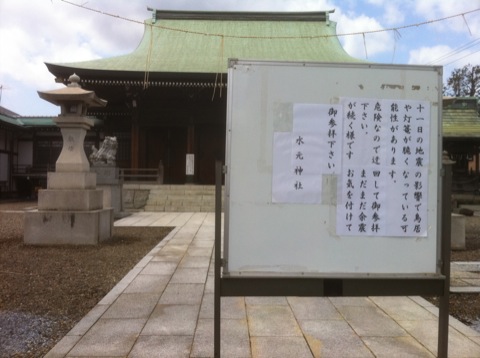 十一日の地震の影響で鳥居
や灯篭が脆くなっている可
能性があります。
危険なので迂回して御参拝
下さい。まだまだ余震
が続く様です お気を付けて
御参拝下さい
水元神社